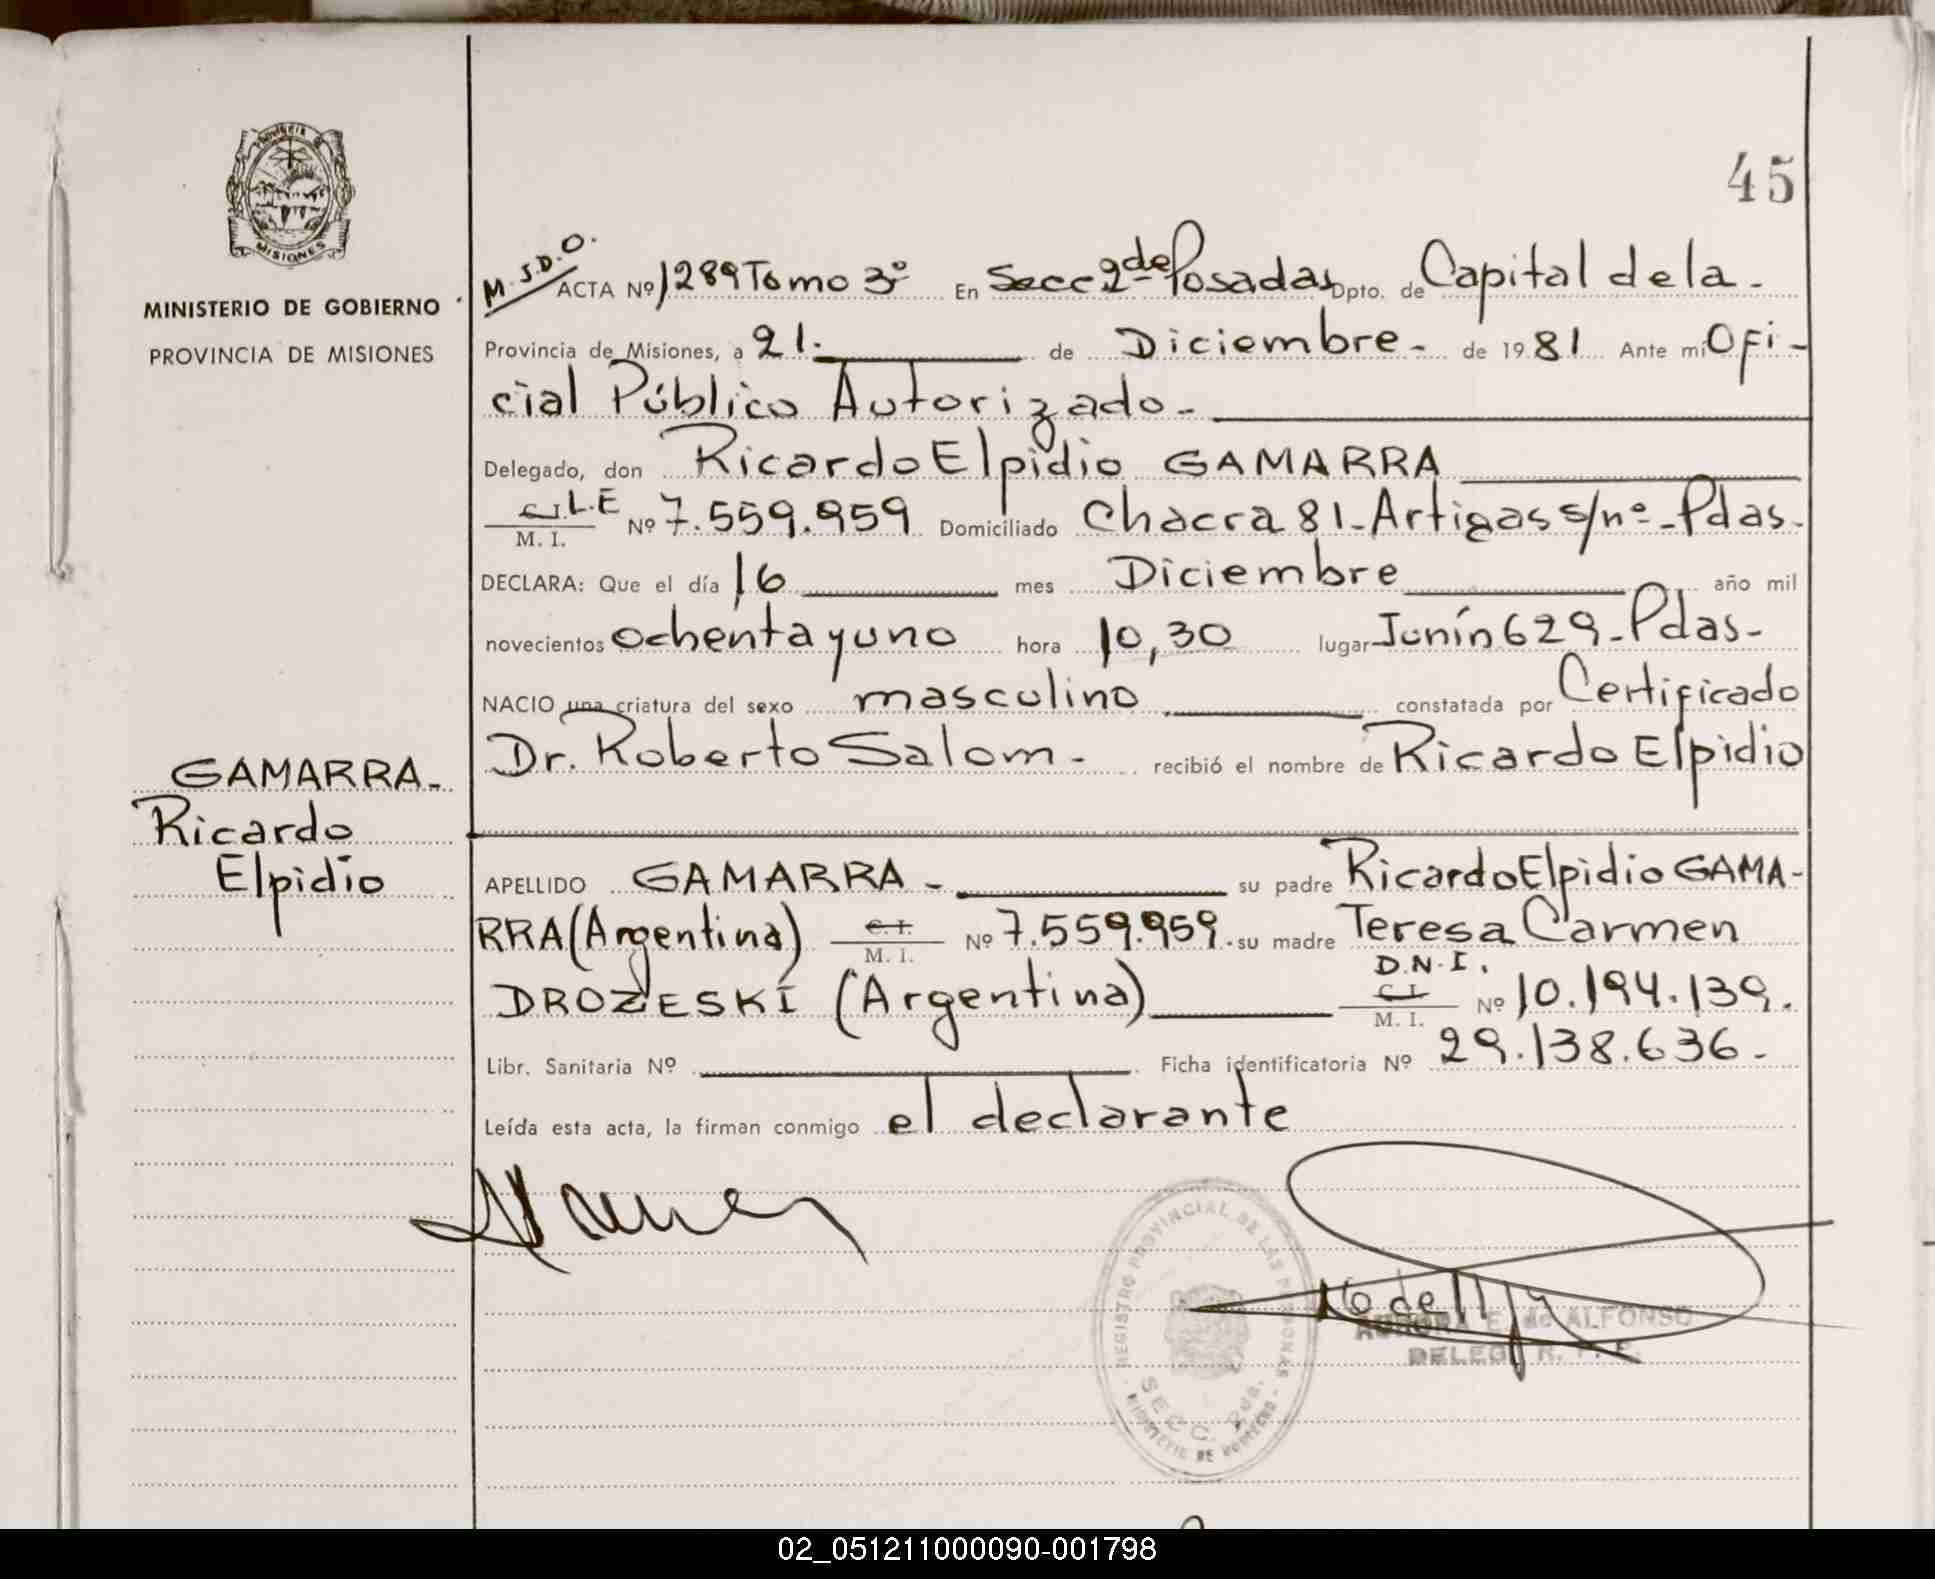 45
PROVINCIA D
MISIONES
MINISTERIO DE GOBIERNO
PROVINCIA DE MISIONES
M.S.D.O.
ACTA Nº 1289 Tomo 3º En Secc 2da de Posadas Dpto. de Capital de la.
Provincia de Misiones, a 21. de Diciembre. de 1981 Ante mi Ofi-
cial Público Autorizado.
Delegado, don Ricardo Elpidio GAMARRA
C.I. L.E
M. I. Nº 7.559.959 Domiciliado Chacra 81-Artigas s/nº-Pdas.
DECLARA: Que el día 16 mes Diciembre año mil
novecientos ochenta y uno hora 10,30 lugar Junín 629-Pdas-
NACIO una criatura del sexo masculino constatada por Certificado
Dr. Roberto Salom- recibió el nombre de Ricardo Elpidio
GAMARRA-
Ricardo
Elpidio
APELLIDO GAMARRA- su padre Ricardo Elpidio GAMA-
RRA (Argentina) C.I. M. I. Nº 7.559.959. su madre Teresa Carmen
D.N.I.
DROZESKI (Argentina) C.I. M. I. Nº 10.194.139.
Libr. Sanitaria Nº Ficha identificatoria Nº 29.138.636-
Leída esta acta, la firman conmigo el declarante
REGISTRO PROVINCIAL DE LAS PERSONAS
SECC. 2da.
MINISTERIO DE GOBIERNO
AURORA E. de ALFONSO
DELEG. R. P. P.
02_051211000090-001798